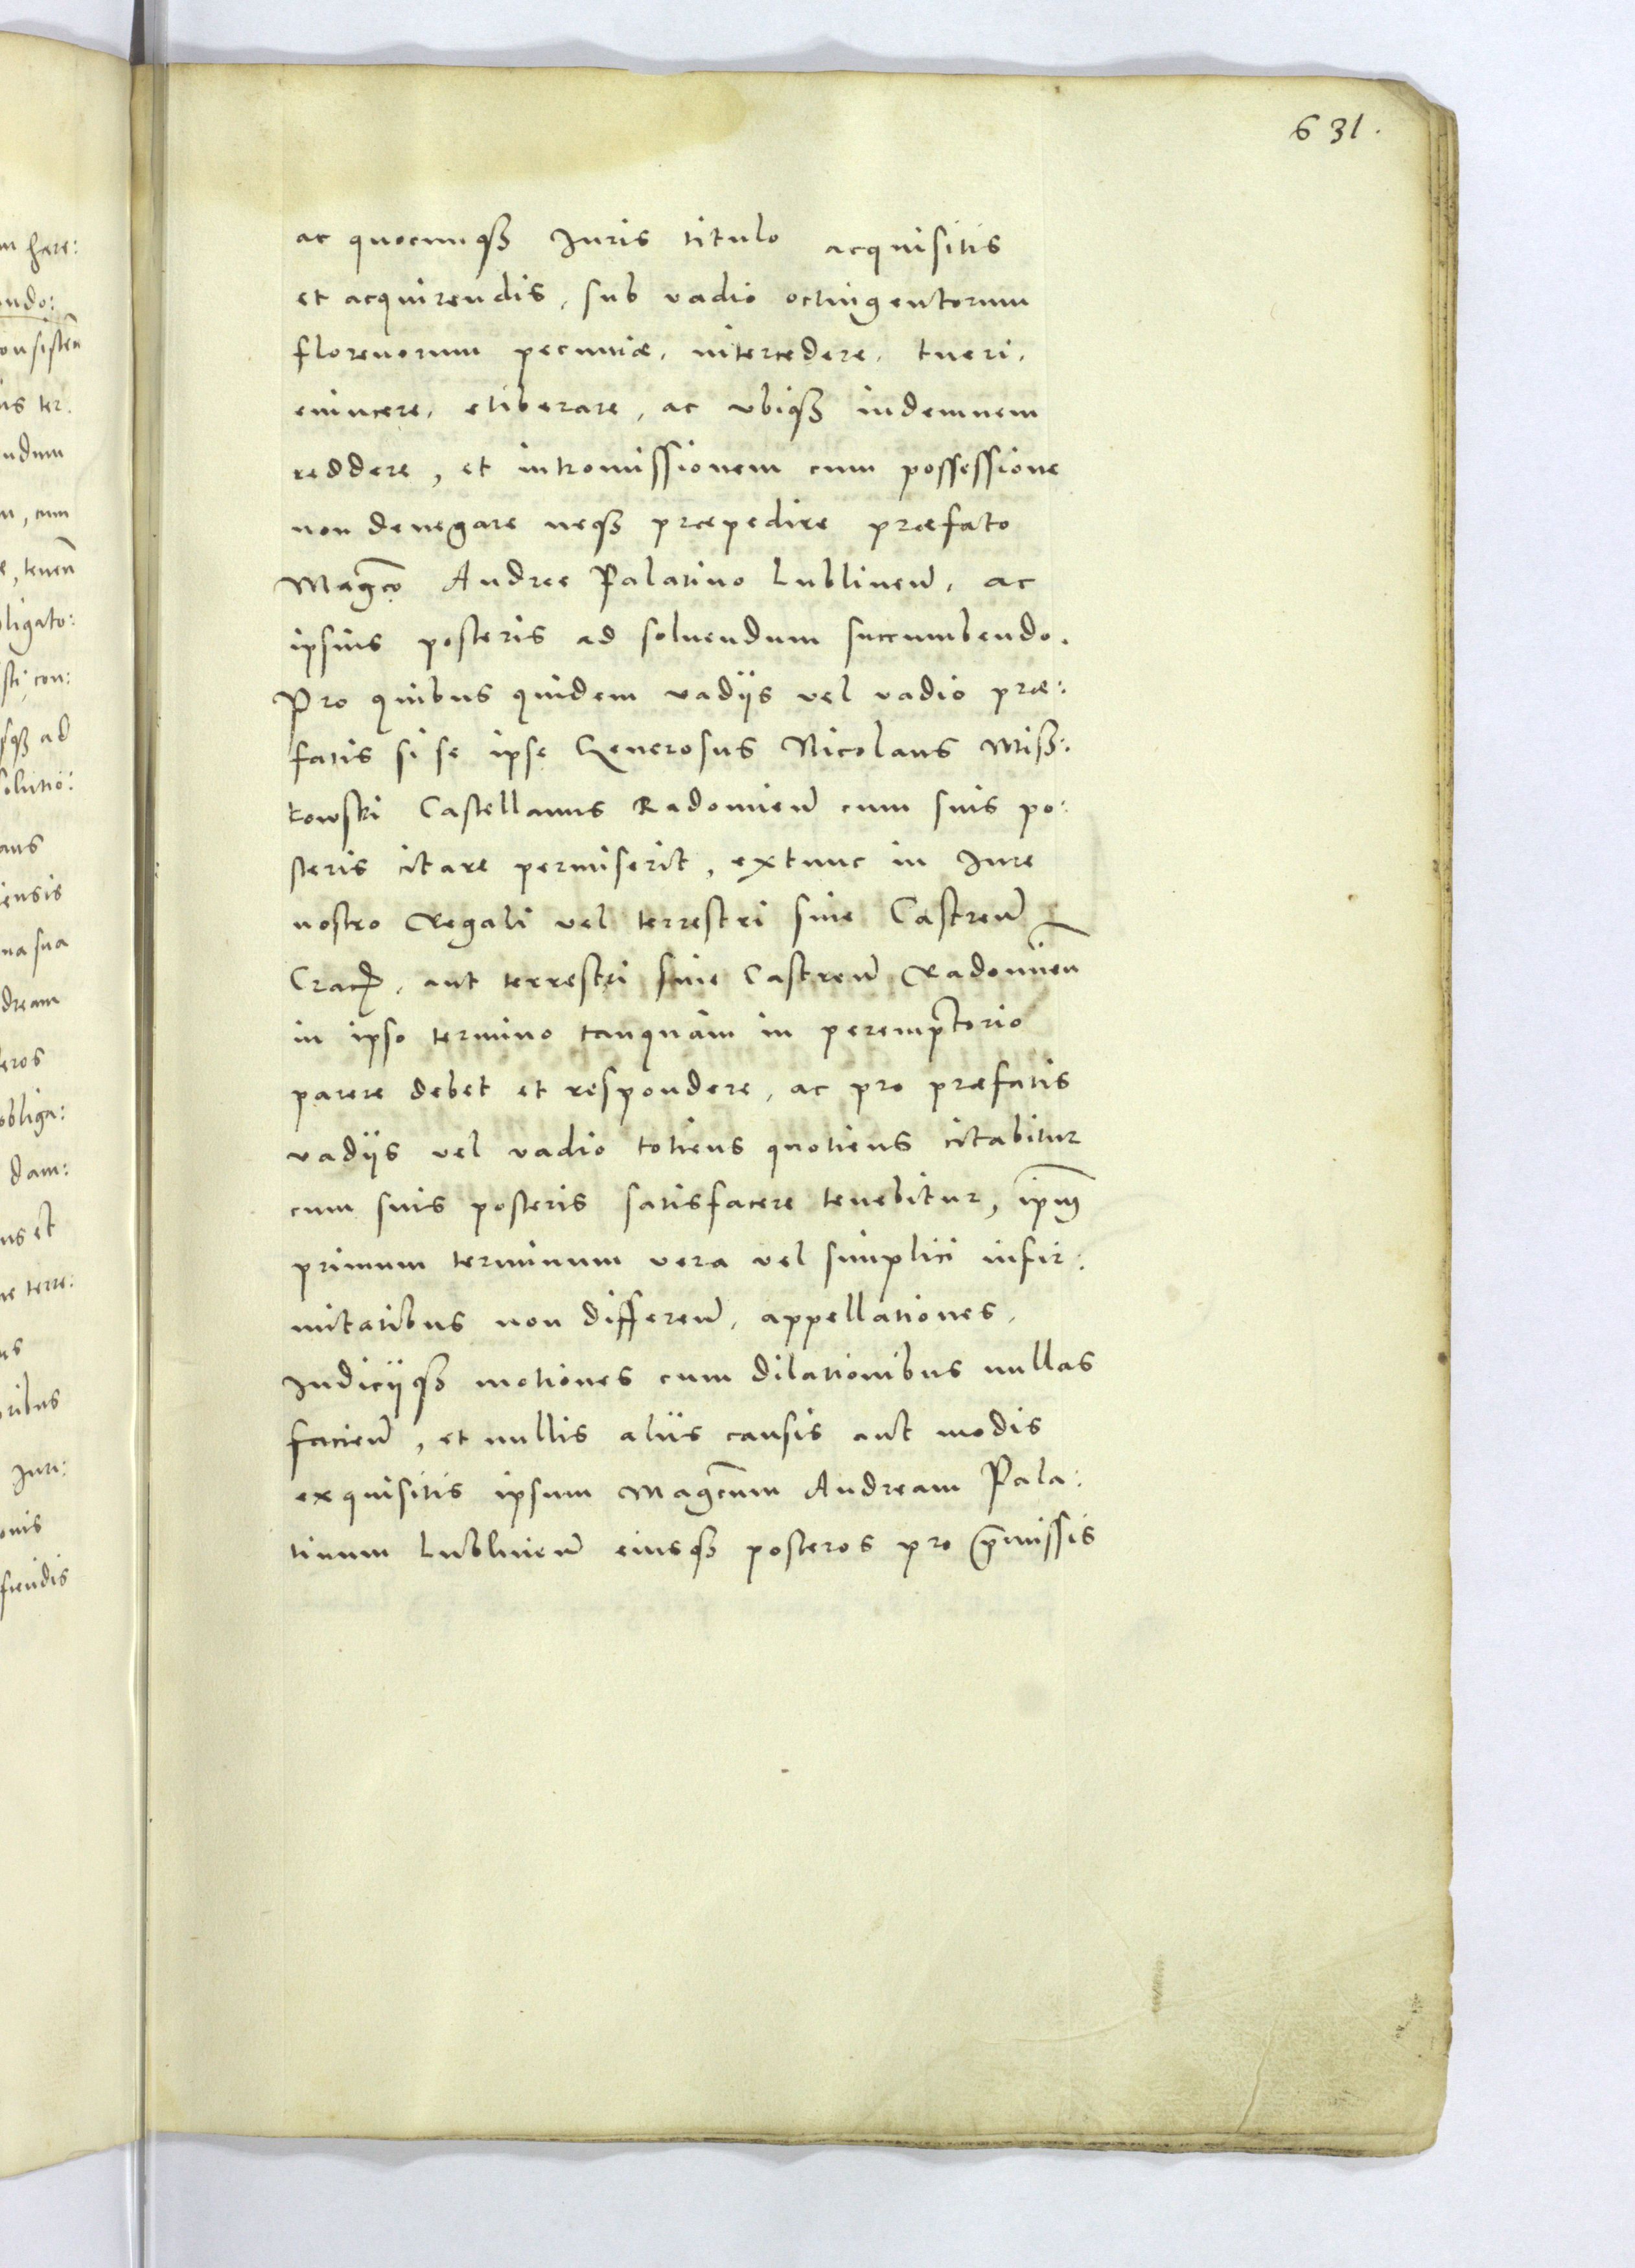 631.
ac quocunqꝫ Iuris titulo acquisitis
et acquirendis, sub vadio octingentorum
florenorum pecuniæ, intercedere, tueri,
euincere, eliberare, ac vbiqꝫ indemnem
reddere, et intromissionem cum possessione
non denegare neqꝫ præpedire præfato
Mag̃co Andree Palatino Lublineñ, ac
ipsius posteris ad soluendum succumbendo.
Pro quibus quidem vadijs vel vadio præ:
fatis si se ipse Generosus Nicolaus Misz:
kowski Castellanus Radomieñ cum suis po:
steris citare permiserit, extunc in Iure
nostro Regali vel terrestri siue Castreñ
Cracoꝟ, aut terrestri siue Castreñ Radomieñ
in ipso termino tanquam in peremptorio
parere debet et respondere, ac pro præfatis
vadijs vel vadio totiens quotiens citabitur
cum suis posteris satisfacere tenebitur, ip̃m
primum terminum vera vel simplici infir:
mitatibus non differeñ, appellationes,
Iudicijqꝫ motiones cum dilationibus nullas
facieñ, et nullis alijs causis aut modis
exquisitis ipsum Mag̃cum Andream Pala:
tinum Lublineñ eiusqꝫ posteros pro p̃missis